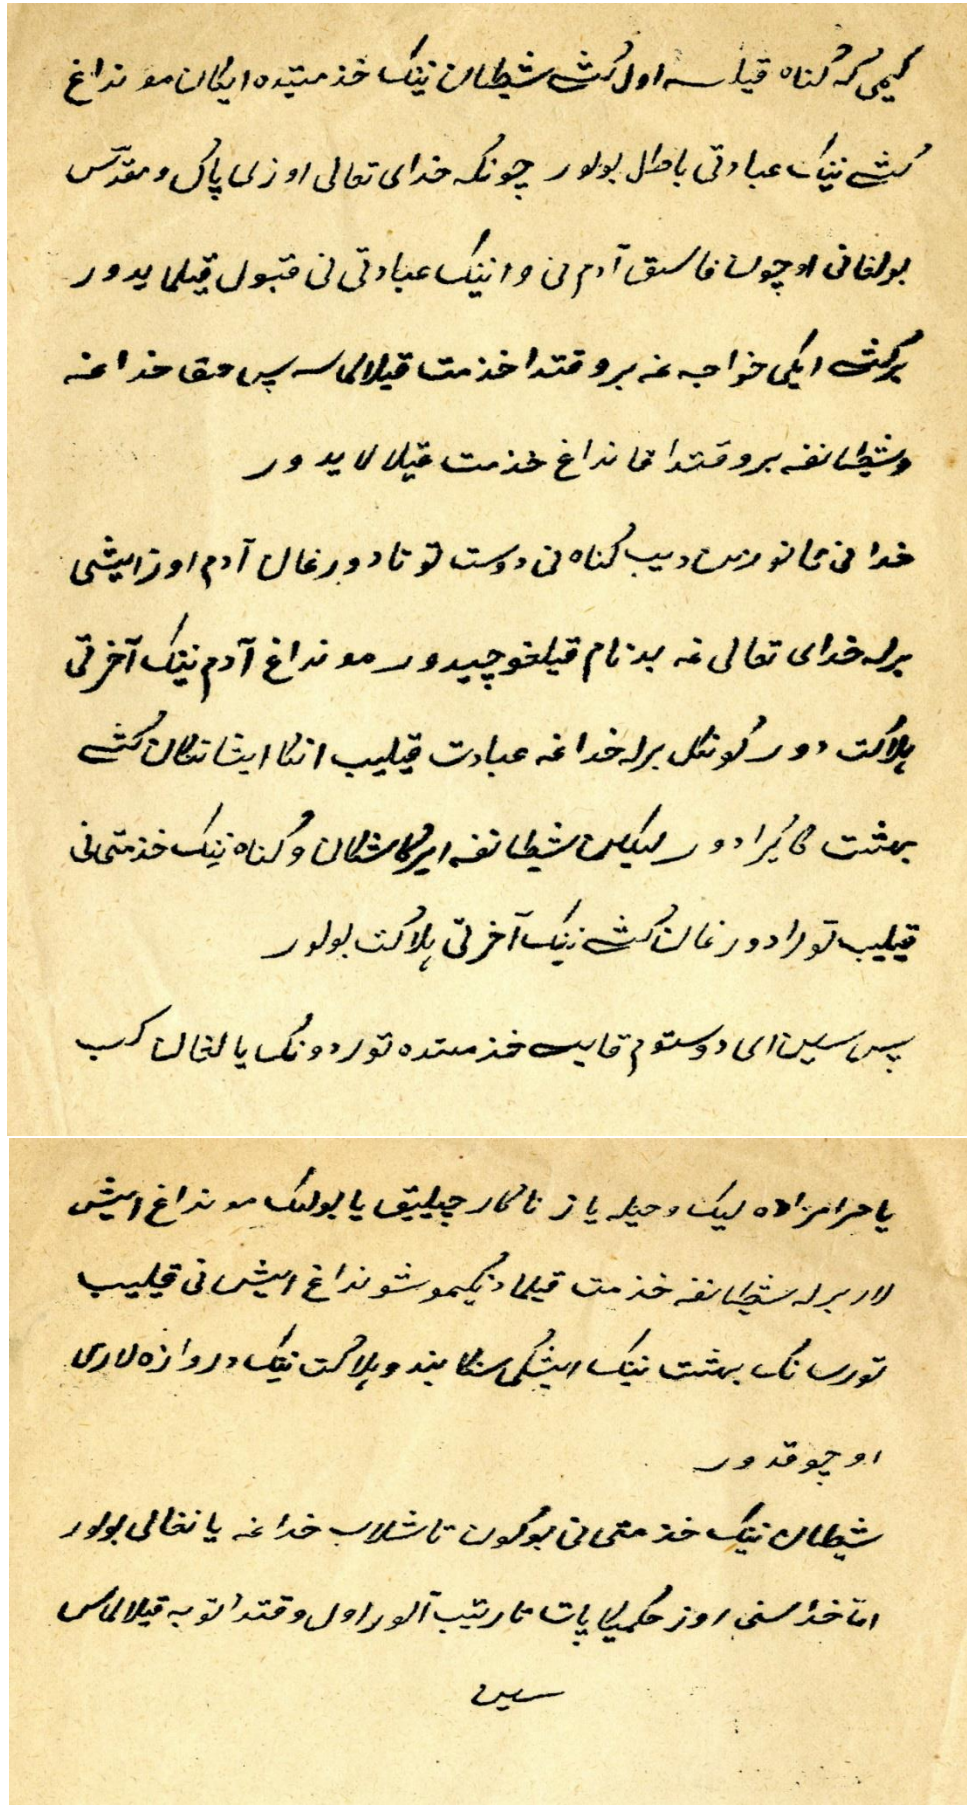 کیمی که گناه قیلسه اول کشی شیطان نینک خذمتیده ایکان مونداغ
کشی نینک عبادتی باطل بولور چونکه خدای تعالی اوزی پاک و مقدّس
بولغانی اوچون فاسق آدم نی و انینک عبادتی نی قبول قیلمایدور
بر کشی ایکی خواجه غه بر وقتدا خذمت قیلالماسه پس حق خداغه
و شیطانغه بر وقتدا قانداغ خذمت قیلالایدور
خدانی تانورمن دیب گناه نی دوست توتادورغان آدم اوز ایشی
برله خدای تعالی غه بدنام قیلغوچیدور مونداغ آدم نینک آخرتی
هلاکت دور کونکل برله خداغه عبادت قیلیب انکا ایشانکان کشی
بهشت کا کیرادور لیکن شیطانغه ایرکاشکان و گناه نینک خذمتانی
قیلیب تورادورغان کشی نینک آخرتی هلاکت بولور
پس سین ای دوستوم قایسی خذمتده توردونک یالغان کب
یا حرامزاده لیک و حیله یا زناکارچیلیق یا بولک مونداغ ایش
لار برله شیطانغه خذمت قیلمادینکیمو شونداغ ایش نی قیلیب
تورسانک بهشت نینک ایشکی سنکا بند و هلاکت نینک دروازه لاری
اوچوقدور
شیطان نینک خذمتانی بوکون تاشلاب خداغه یانغالی بولور
امّا خدا سنی اوز حکمیکا پات تارتیب آلور اول وقتدا توبه قیلالماس
سین